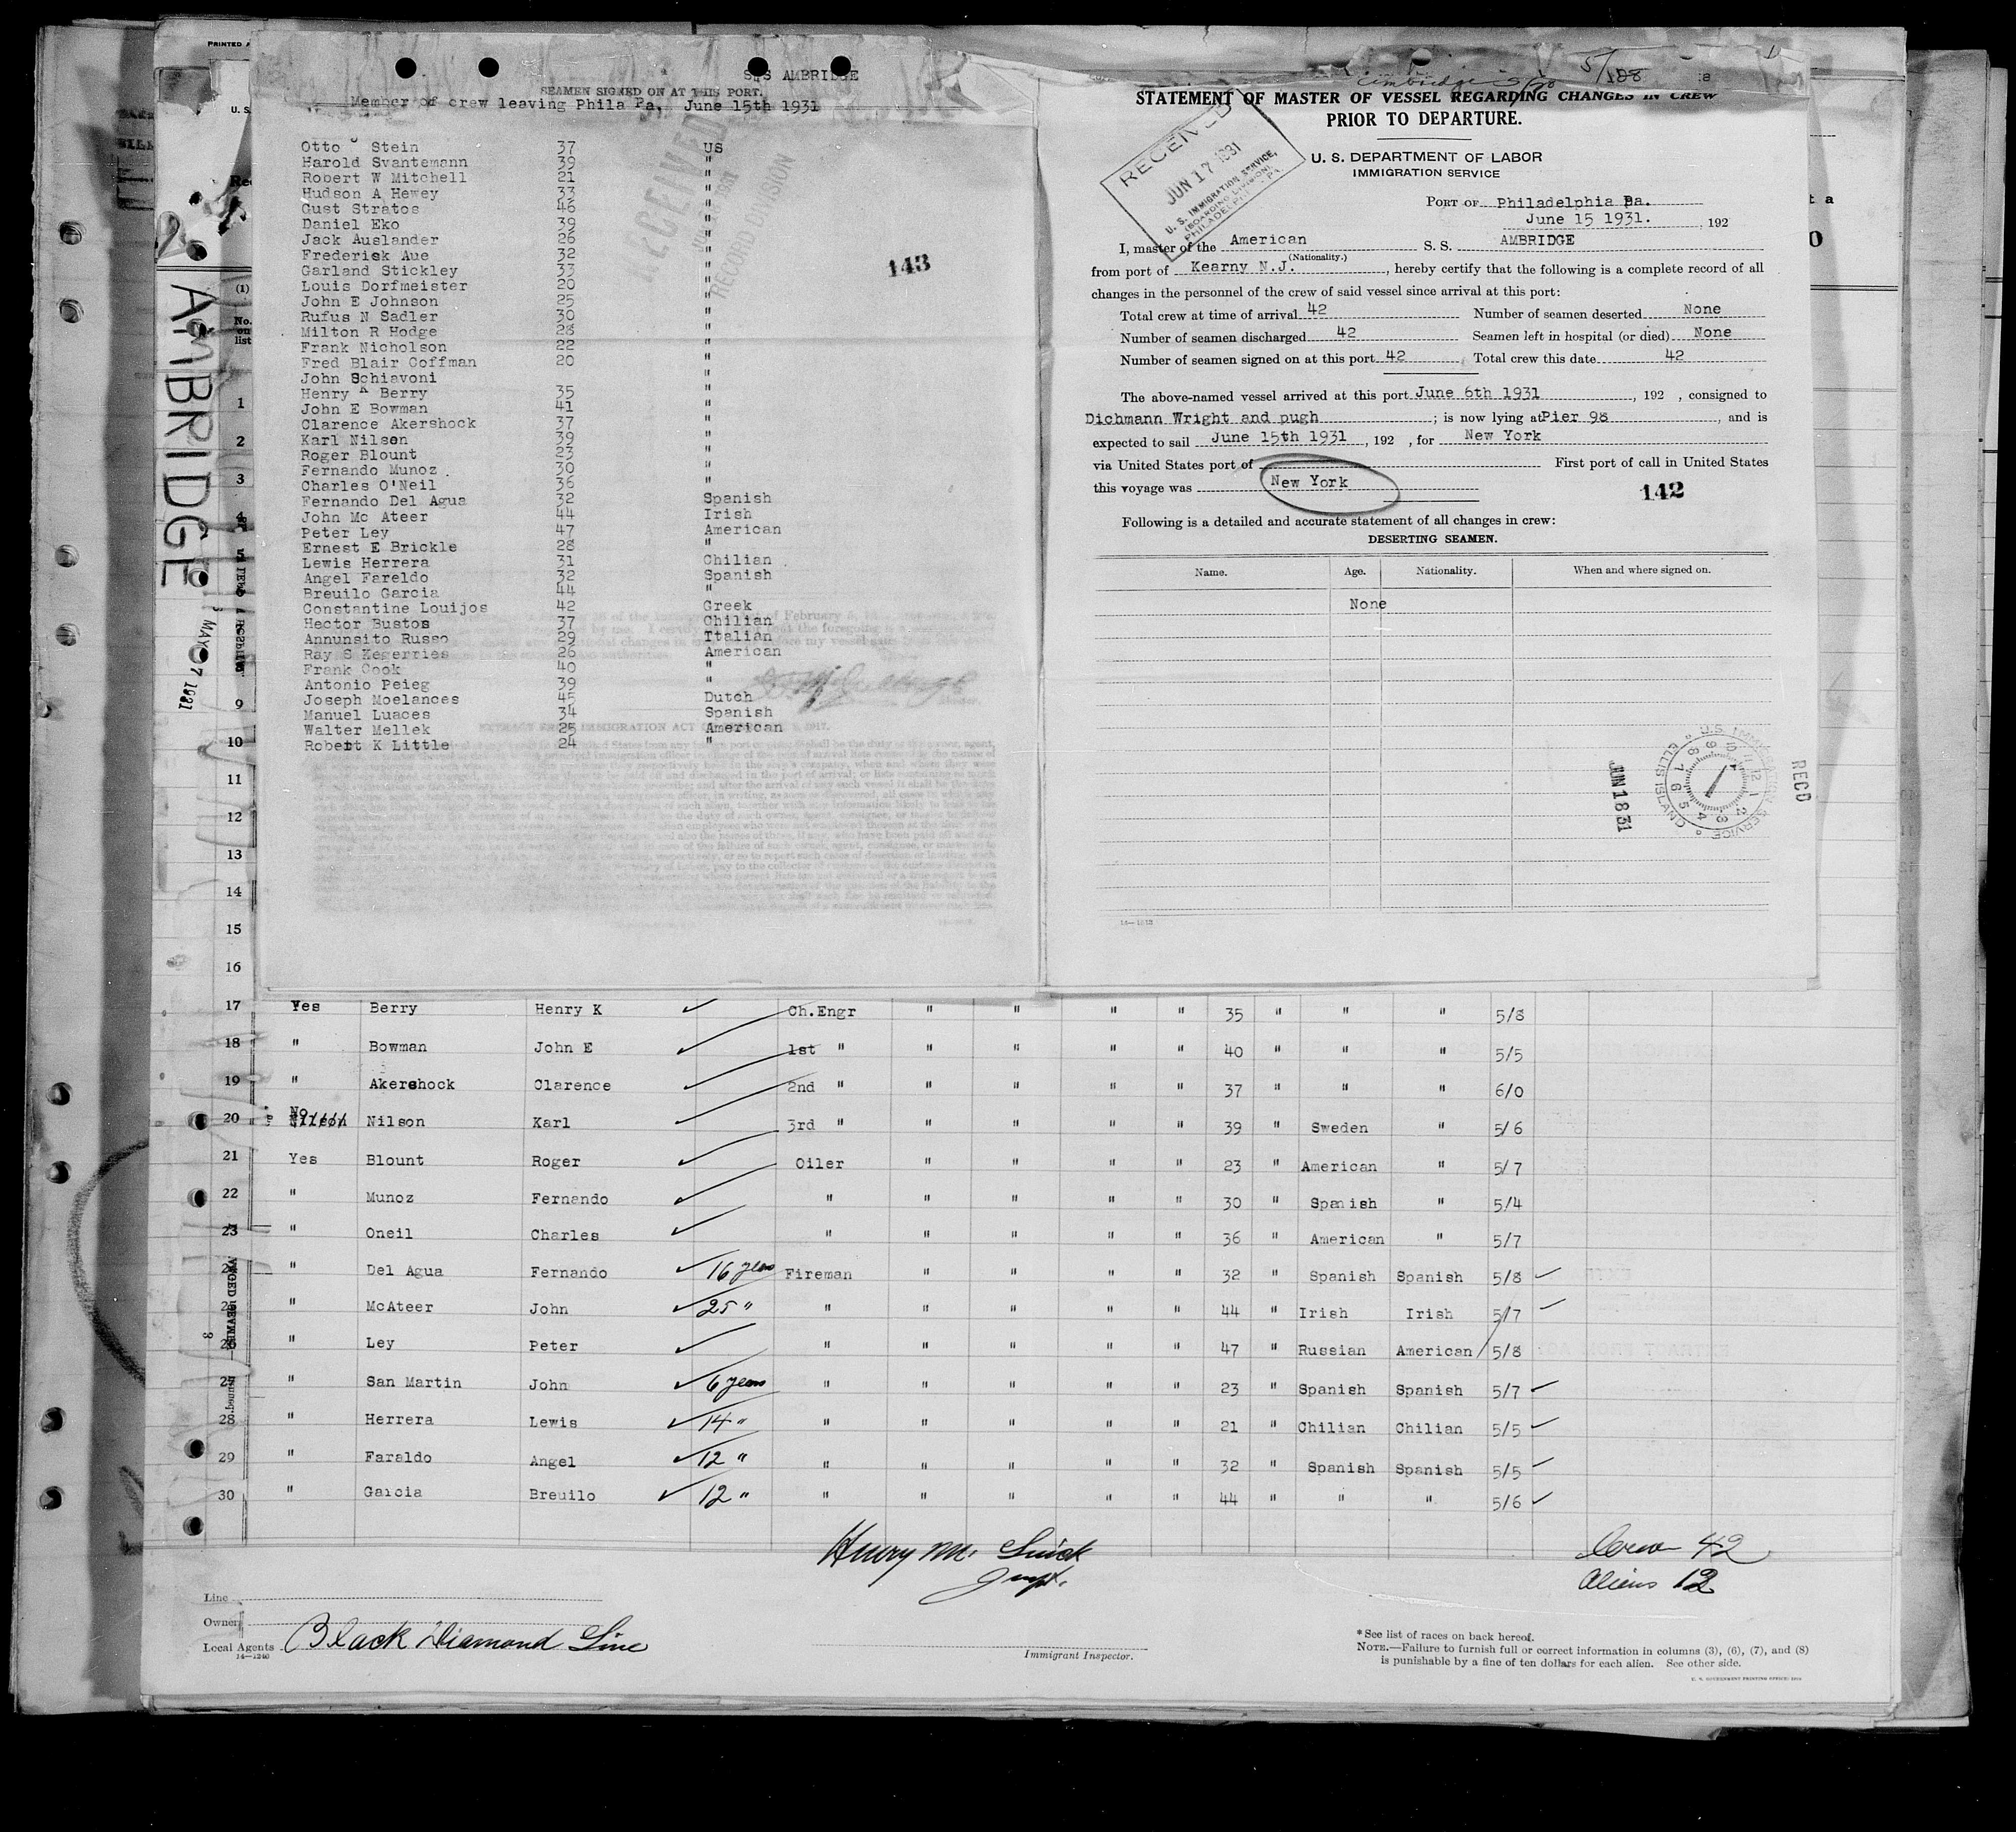 PRINTED
U. S.
S S AMBRIDGE
SEAMEN SIGNED ON AT THIS PORT.
Member of crew leaving Phila Pa, June 15th 1931
Otto Stein 37 US
Harold Svantemann 39 "
Robert W Mitchell 21 "
Hudson A Hewey 33 "
Gust Stratos 46 "
Daniel Eko 39 "
Jack Auslander 26 "
Frederick Aue 32 "
Garland Stickley 33 "
Louis Dorfmeister 20 "
John E Johnson 25 "
Rufus N Sadler 30 "
Milton R Hodge 28 "
Frank Nicholson 22 "
Fred Blair Coffman 20 "
John Schiavoni "
Henry K Berry 35 "
John E Bowman 41 "
Clarence Akershock 37 "
Karl Nilson 39 "
Roger Blount 23 "
Fernando Munoz . 30 "
Charles O'Neil 36 "
Fernando Del Agua 32 Spanish
John Mc Ateer 44 Irish
Peter Ley 47 American
Ernest E Brickle 28 "
Lewis Herrera 31 Chilian
Angel Fareldo 32 Spanish
Breuilo Garcia 44 "
Constantine Louijos 42 Greek
Hector Bustos 37 Chilian
Annunsito Russo 29 Ttalian
Ray S Kegerries 26 American
Frank Cook 40 "
Antonio Peieg 39 "
Joseph Moelances 45 Dutch
Manuel Luaces 34 Spanish
Walter Mellek 25 American
Robert K Little 24 "
RECEIVED
RECORD DIVISION
143
EXTRACT FROM IMMIGRATION ACT
AMBRIDGE
MAY 7 1931
5/128
STATEMENT OF MASTER OF VESSEL REGARDING CHANGES IN CREW
PRIOR TO DEPARTURE.
U. S. DEPARTMENT OF LABOR
IMMIGRATION SERVICE
RECEIVED
JUN 17 1931
U. S. IMMIGRATION SERVICE,
(BOARDING DIVISION)
PHILADELPHIA, PA.
PORT OF Philadelphia Pa.
June 15 1931. , 192
I, master of the American S. S. AMBRIDGE
(Nationality.)
from port of Kearny N.J. , hereby certify that the following is a complete record of all
changes in the personnel of the crew of said vessel since arrival at this port:
Total crew at time of arrival 42 Number of seamen deserted None
Number of seamen discharged 42 Seamen left in hospital (or died) None
Number of seamen signed on at this port 42 Total crew this date 42
The above-named vessel arrived at this port June 6th 1931 , 192 , consigned to
Dichmann Wright and pugh ; is now lying at Pier 98 , and is
expected to sail June 15th 1931 , 192 , for New York
via United States port of First port of call in United States
this voyage was New York
142
Following is a detailed and accurate statement of all changes in crew:
DESERTING SEAMEN.
Name. Age. Nationality. When and where signed on.
None
U.S. IMMIGRATION SERVICE ELLIS ISLAND
JUN 18 31
RECD
14—1513
(1)
No. on list
1
2
3
4
5
9
10
11
12
13
14
15
16
17 Yes Berry Henry K Ch.Engr " " " " 35 " " " 5/8
18 " Bowman John E 1st " " " " " 40 " " " 5/5
19 " Akershock Clarence 2nd " " " " " 37 " " " 6/0
20 No Nilson Karl 3rd " " " " " 39 " Sweden " 5/6
21 Yes Blount Roger Oiler " " " " 23 " American " 5/7
22 " Munoz Fernando " " " " " 30 " Spanish " 5/4
23 " Oneil Charles " " " " " 36 " American " 5/7
24 " Del Agua Fernando 16 years Fireman " " " " 32 " Spanish Spanish 5/8
25 " McAteer John 25 " " " " " " 44 " Irish Irish 5/7
26 " Ley Peter " " " " " 47 " Russian American 5/8
27 " San Martin John 6 years " " " " " 23 " Spanish Spanish 5/7
28 " Herrera Lewis 14 " " " " " " 21 " Chilian Chilian 5/5
29 " Faraldo Angel 12 " " " " " " 32 " Spanish Spanish 5/5
30 " Garcia Breuilo 12 " " " " " " 44 " " " 5/6
Crew 42
Aliens 12
Line
Owner
Local Agents Black Diamond Line
14—1240
Immigrant Inspector.
* See list of races on back hereof.
NOTE.—Failure to furnish full or correct information in columns (3), (6), (7), and (8)
is punishable by a fine of ten dollars for each alien. See other side.
U. S. GOVERNMENT PRINTING OFFICE